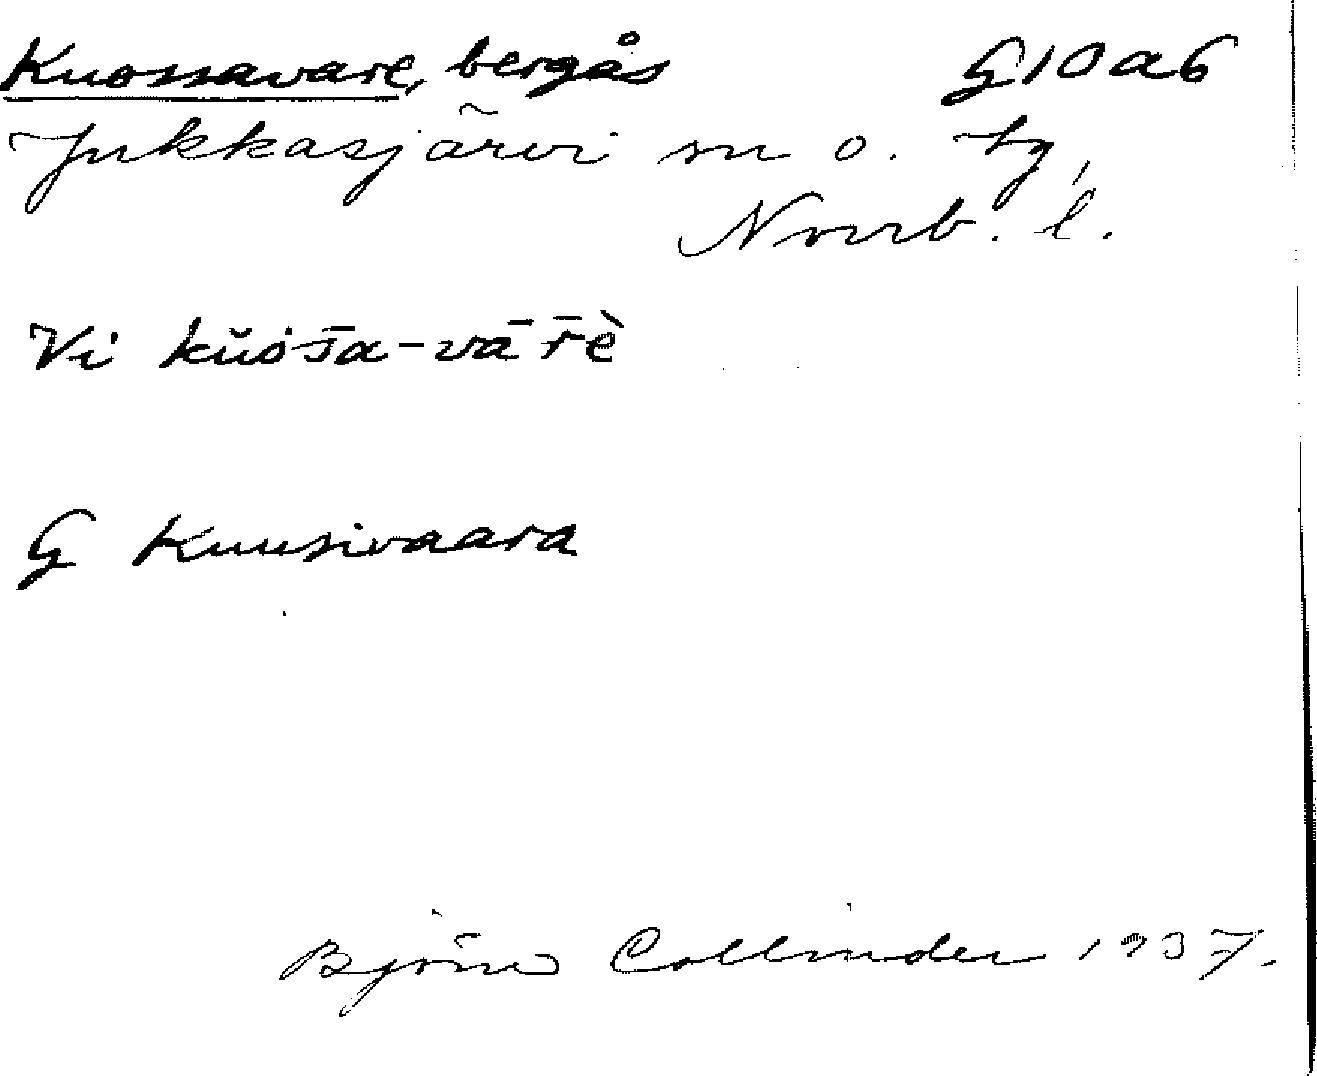 Kuossavare, bergås G10a6
Jukkasjärvi sn o. tg,
Norrb. l.
Vi kŭȯs̄a-vār̄è
G Kuusivaara
Björn Collinder 1937.